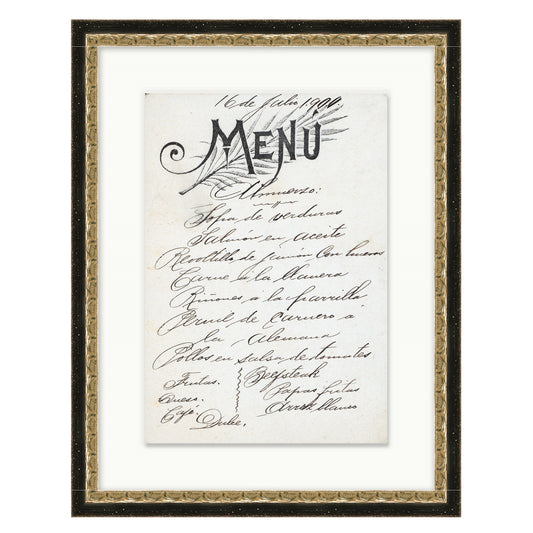 16 de Julio 1900.
MENÚ
Almuerzo:
Sopa de verduras
Salmón en aceite
Revoltillo de jamón con huevos
Carne a la llanera
Riñones a la parrilla
Pernil de carnero a
la Alemana
Pollos en salsa de tomates
Frutas.
Queso.
Café.
Dulce.
Beefsteak
Papas fritas
Arroz blanco